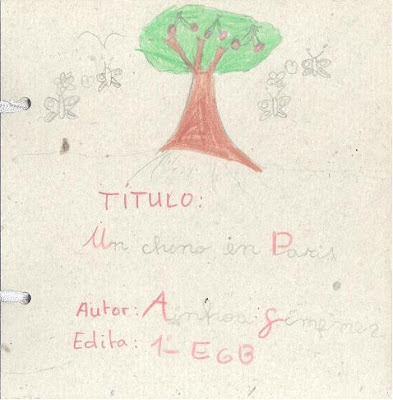 TÍTULO:
Un cheno en Paris
Autor: Ainhoa Gimenez
Edita: 1º EGB